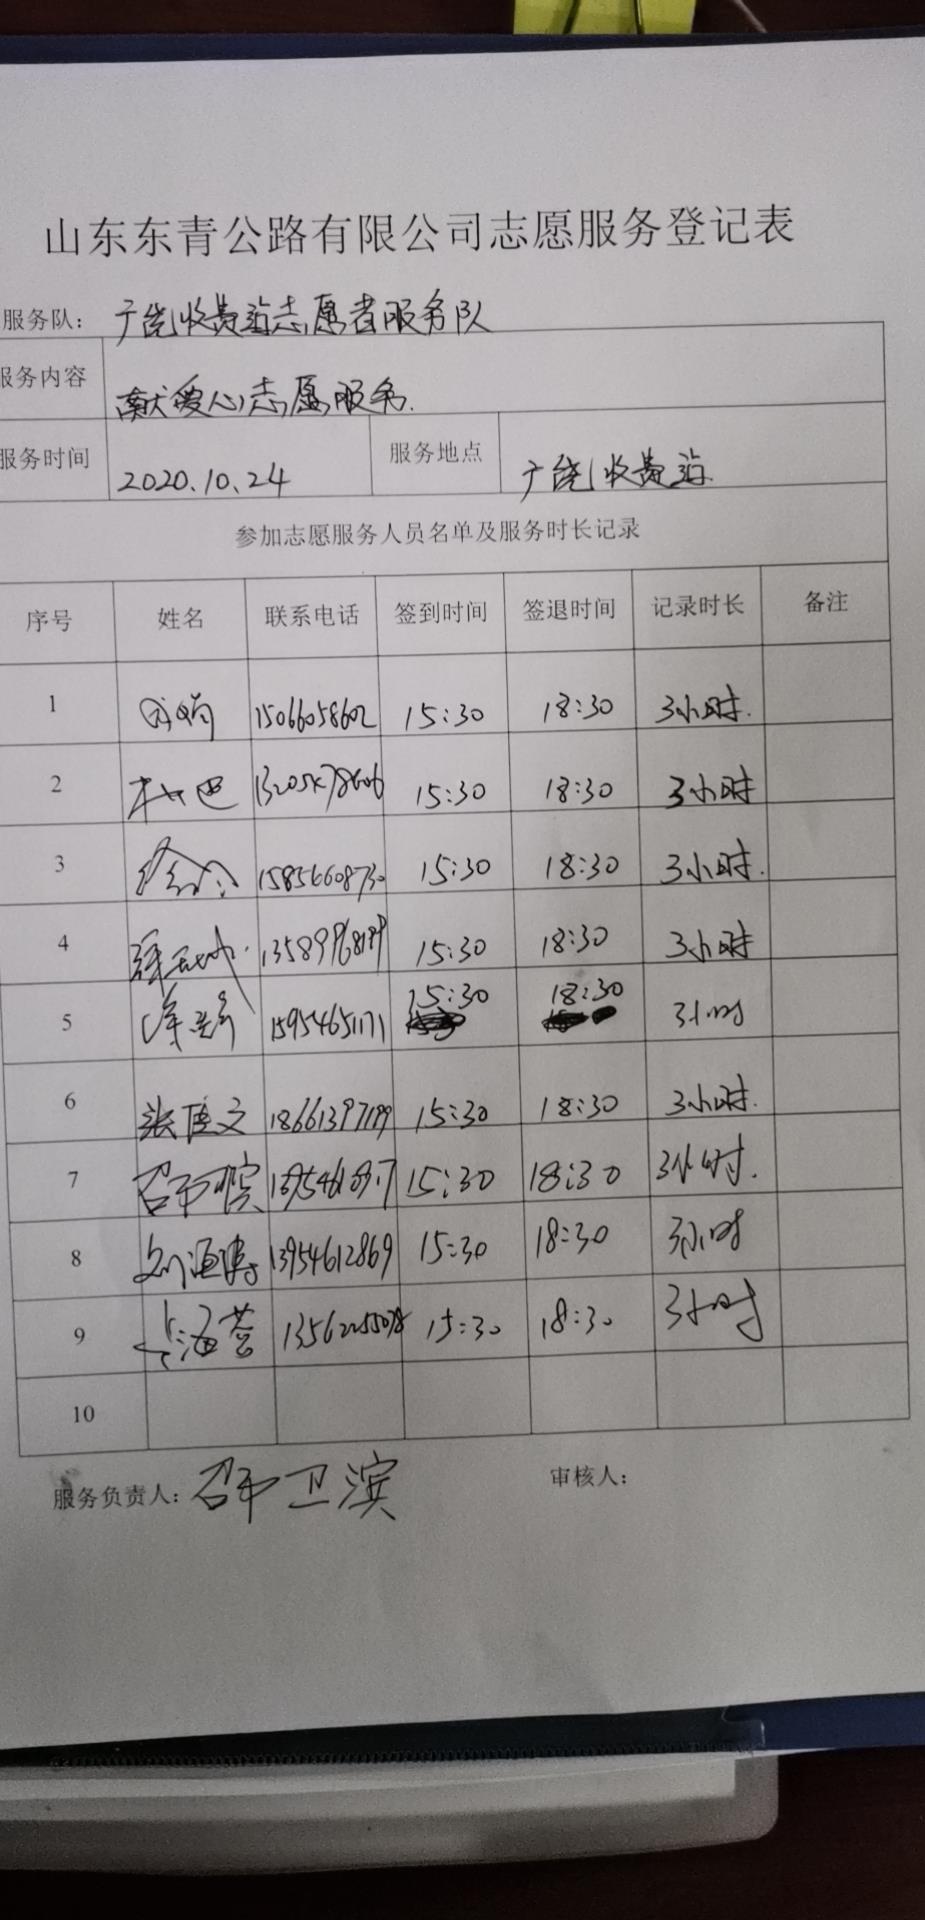 山东东青公路有限公司志愿服务登记表
服务队: 广饶收费站志愿者服务队
服务内容 献爱心志愿服务.
服务时间 2020.10.24 服务地点 广饶收费站
参加志愿服务人员名单及服务时长记录
序号 姓名 联系电话 签到时间 签退时间 记录时长 备注
1 15066058602 15:30 18:30 3小时.
2 15:30 18:30 3小时
3 15856608730 15:30 18:30 3小时.
4 15:30 18:30 3小时
5 15954651171 15:30 18:30 3小时
6 18661397199 15:30 18:30 3小时.
7 15:30 18:30 3小时.
8 13954612869 15:30 18:30 3小时
9 15:30 18:30 3小时
10
服务负责人: 邵卫滨 审核人: